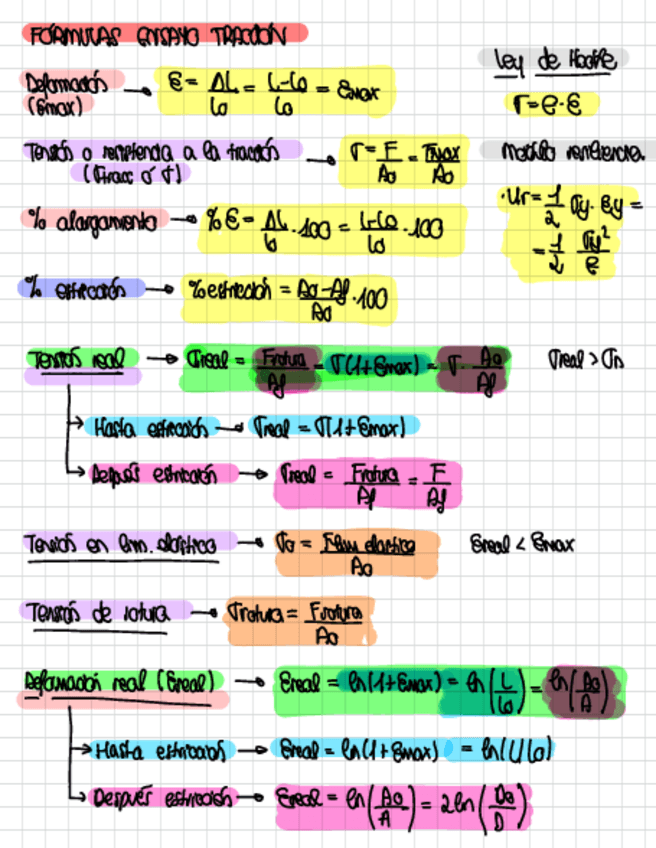 FÓRMULAS ENSAYO TRACCIÓN
Ley de Hooke
Deformación (εmax) → ε = ΔL/L0 = L-L0/L0 = εmax
σ = e · ε
Tensión o resistencia a la tracción (σtracc o σ) → σ = F/A0 = Fmax/A0
Módulo resiliencia
· Ur = 1/2 σy · εy =
= 1/2 σy²/e
% alargamiento → % ε = ΔL/L0 · 100 = L-L0/L0 · 100
% estricción → % estricción = A0-Af/A0 · 100
Tensión real → σreal = Frotura/Af = σ(1+εmax) = σ · A0/Af
σreal > σn
→ Hasta estricción → σreal = σ(1+εmax)
→ Después estricción → σreal = Frotura/Af = F/Af
Tensión en lím. elástico → σ0 = Flím elástico/A0
εreal < εmax
Tensión de rotura → σrotura = Frotura/A0
Deformación real (εreal) → εreal = ln(1+εmax) = ln(L/L0) = ln(A0/A)
→ Hasta estricción → εreal = ln(1+εmax) = ln(L/L0)
→ Después estricción → εreal = ln(A0/A) = 2ln(D0/D)